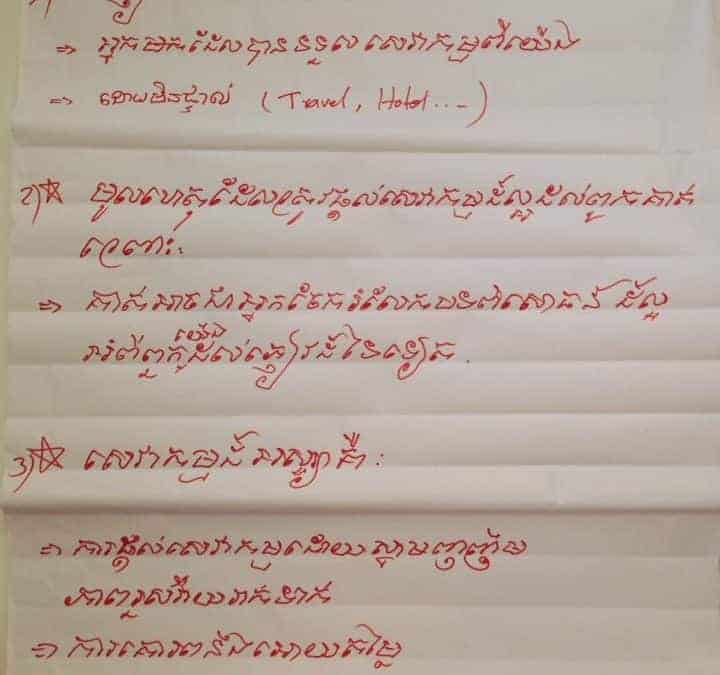 ⇒ អ្នកណាដែលបានទទួលសេវាកម្មពីយើង
⇒ ដោយមិនផ្ទាល់ (Travel, Hotel...)
2)☆ មូលហេតុដែលត្រូវផ្ដល់សេវាកម្មដ៏ល្អដល់ពួកគាត់
ព្រោះ:
⇒ គាត់អាចជាអ្នកចែករំលែកបទពិសោធន៍ ដ៏ល្អ
អំពីពួកយើងដល់ភ្ញៀវដ៏ទៃទៀត.
3)☆ សេវាកម្មដ៏អស្ចារ្យគឺ:
⇒ ការផ្ដល់សេវាកម្មដោយស្នាមញញឹម
ភាពរួសរាយរាក់ទាក់
⇒ ការគោរពនឹងអោយតម្លៃ